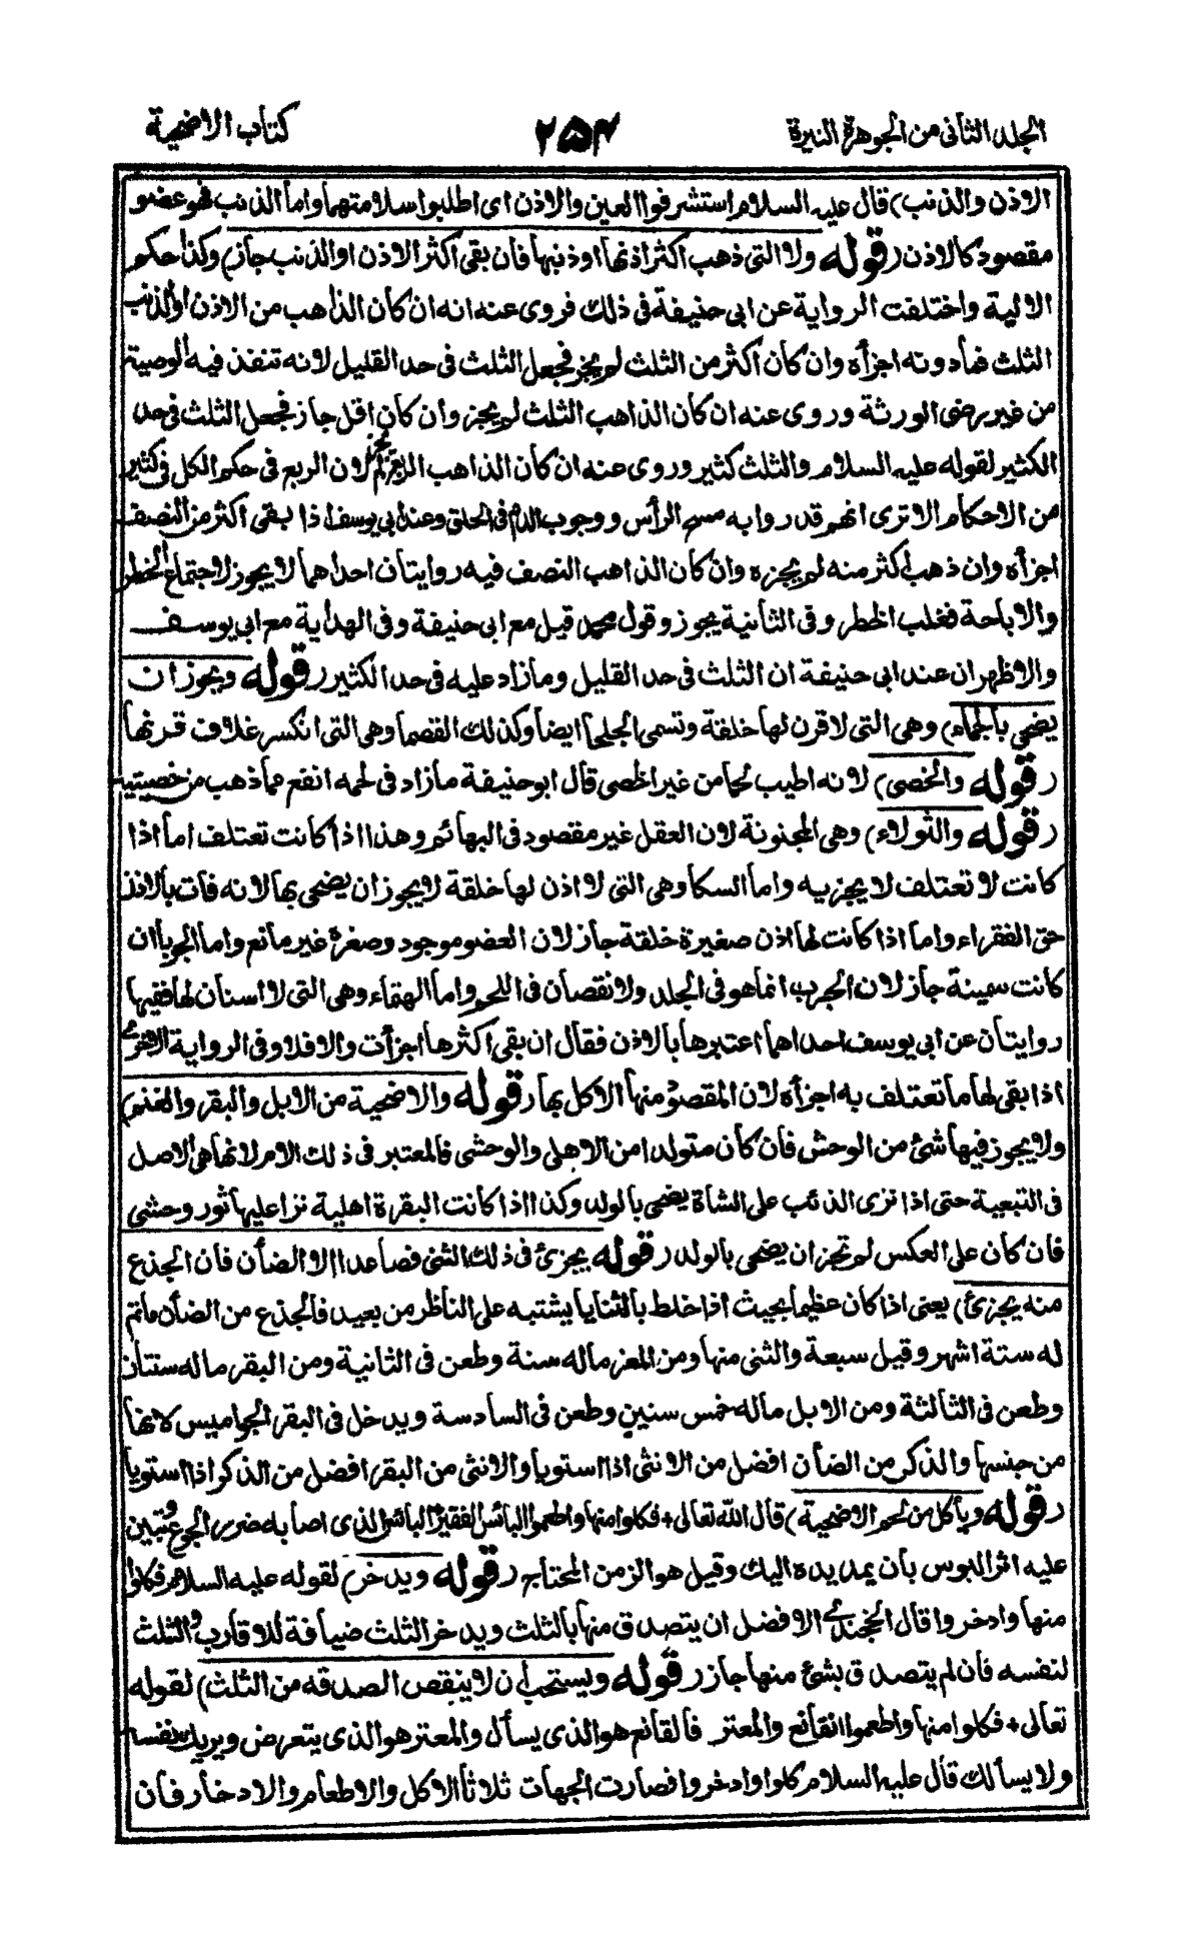 الجلد الثاني من الجوهرة النيرة ٢٥٤ كتاب الاضحية
الاذن والذنب) قال عليه السلام استشرفوا العين والاذن اى اطلبوا سلامتهما واما الذنب فهو عضو
مقصود كالاذن (قوله ولا التى ذهب اكثر اذنها او ذنبها فان بقى اكثر الاذن او الذنب جاز) وكذا حكم
الالية واختلفت الرواية عن ابى حنيفة فى ذلك فروى عنه انه ان كان الذاهب من الاذن او الذنب
الثلث فما دونه اجزأه وان كان اكثر من الثلث لم يجز فجعل الثلث فى حد القليل لانه تنفذ فيه الوصية
من غير رضى الورثة وروى عنه ان كان الذاهب الثلث لم يجز وان كان اقل جاز فجعل الثلث فى حد
الكثير لقوله عليه السلام والثلث كثير وروى عنه ان كان الذاهب الربع لم يجز لان الربع فى حكم الكل فى كثير
من الاحكام الا ترى انهم قدروا به مسح الرأس ووجوب الدم فى الحلق وعند ابى يوسف اذا بقى اكثر من النصف
اجزأه وان ذهب اكثر منه لم يجزه وان كان الذاهب النصف فيه روايتان احداهما لا يجوز لاجتماع الحظر
والاباحة فغلب الحظر وفى الثانية يجوز وقول محمد قيل مع ابى حنيفة وفى الهداية مع ابى يوسف
والاظهر ان عند ابى حنيفة ان الثلث فى حد القليل وما زاد عليه فى حد الكثير (قوله ويجوز ان
يضحى بالجماء) وهى التى لا قرن لها خلقة وتسمى الجلحا ايضا وكذلك القصما وهى التى انكسر غلاف قرنها
(قوله والخصى) لانه اطيب لحما من غير الخصى قال ابو حنيفة ما زاد فى لحمه انفع مما ذهب من خصيتيه
(قوله والثولاء) وهى المجنونة لان العقل غير مقصود فى البهائم وهذا اذا كانت تعتلف اما اذا
كانت لا تعتلف لا يجزيه واما السكا وهى التى لا اذن لها خلقة لا يجوز ان يضحى بها لانه فات بالاذن
حق الفقراء واما اذا كانت لها اذن صغيرة خلقة جاز لان العضو موجود وصغره غير مانع واما الجربا ان
كانت سمينة جاز لان الجرب انما هو فى الجلد ولا نقصان فى اللحم واما الهتماء وهى التى لا اسنان لها ففيها
روايتان عن ابى يوسف احداهما اعتبرها بالاذن فقال ان بقى اكثرها اجزأت والا فلا وفى الرواية الاخرى
اذا بقى لها ما تعتلف به اجزأه لان المقصود منها الاكل بها (قوله والاضحية من الابل والبقر والغنم)
ولا يجوز فيها شئ من الوحش فان كان متولدا من الاهلى والوحشى فالمعتبر فى ذلك الام لانها هى الاصل
فى التبعية حتى اذا نزى الذئب على الشاة يضحى بالولد وكذا اذا كانت البقرة اهلية نزا عليها ثور وحشى
فان كان على العكس لم تجز ان يضحى بالولد (قوله يجزئ فى ذلك الثنى فصاعدا الا الضأن فان الجذع
منه يجزئ) يعنى اذا كان عظيما بحيث اذا خلط بالثنايا يشتبه على الناظر من بعيد فالجذع من الضأن ما تم
له ستة اشهر وقيل سبعة والثنى منها ومن المعز ماله سنة وطعن فى الثانية ومن البقر ماله سنتان
وطعن فى الثالثة ومن الابل ماله خمس سنين وطعن فى السادسة ويدخل فى البقر الجواميس لانها
من جنسها والذكر من الضأن افضل من الانثى اذا استويا والانثى من البقر افضل من الذكر اذا استويا
(قوله ويأكل من لحم الاضحية) قال الله تعالى + فكلوا منها واطعموا البائس الفقير + البائس الذى اصابه ضرر الجوع وتبين
عليه اثر البوس بان يمد يده اليك وقيل هو الزمن المحتاج (قوله ويدخر) لقوله عليه السلام فكلوا
منها وادخروا قال الخجندى الافضل ان يتصدق منها بالثلث ويدخر الثلث ضيافة للاقارب والثلث
لنفسه فان لم يتصدق بشئ منها جاز (قوله ويستحب ان لا ينقص الصدقة من الثلث) لقوله
تعالى + فكلوا منها واطعموا القانع والمعتر فالقانع هو الذى يسأل والمعتر هو الذى يتعرض ويريك نفسه
ولا يسألك قال عليه السلام كلوا وادخروا فصارت الجهات ثلاثا الاكل والاطعام والادخار فان